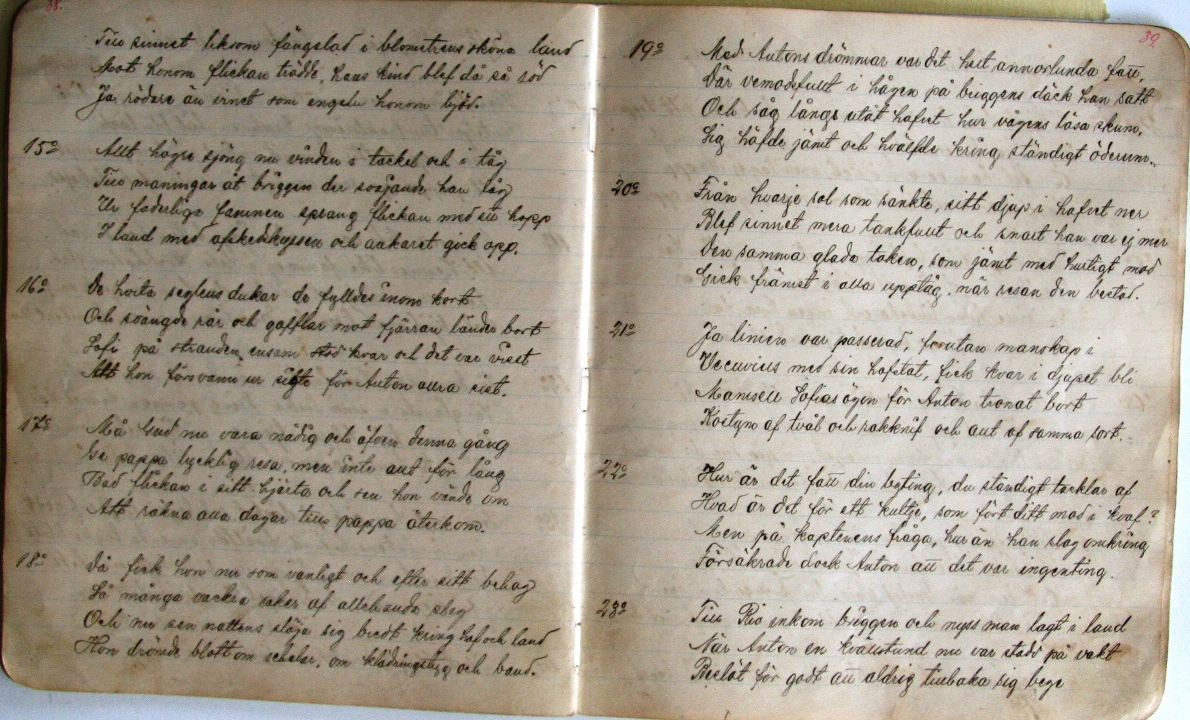 38.
Till sinnet liksom fängslad i blomstrens sköna land
Mot honom flickan trädde, hans kind blef då så röd
Ja rödare än vinet som engeln honom bjöd.
15=
Allt högre sjöng nu vinden i tackel och i tåg
Till maningar åt briggen der svajande han låg
Ur faderliga famnen sprang flickan med en hopp
I land med afskedskyssen och ankaret gick opp.
16=
De hvita seglens dukar de fylldes inom kort
Och svängde rår och gafflar mot fjärran länder bort
Sofi på stranden ensam stod kvar och det var visst
Att hon försvann ur sigte för Anton allra sist.
17=
Må Gud nu vara nådig och äfven denna gång
Ge pappa lycklig resa, men inte allt för lång
Bad flickan i sitt hjerta och sen hon vände om
Att räkna alla dagar till pappa återkom.
18=
Då fick hon nu som vanligt och efter sitt behag
Så många vackra saker af allehanda slag
Och nu sen nattens slöja sig bredt kring haf och land
Hon drömde blott om schalar, om klädningstyg och band.
39.
19=
Med Antons drömmar var det helt annorlunda fatt,
Där vemodsfullt i hågen på briggens däck han satt
Och såg långt utåt hafvet hur vågens lösa skum,
Sig häfde jämt och hvälfde kring ständigt öderum.
20=
Från hvarje sol som sänkte, sitt djup i hafvet ner
Blef sinnet mera tankfullt och snart han var ej mer
Den samma glada toker, som jämt med hurtigt mod
Gick främst i alla upptåg, när resan den bestod.
21=
Ja linien var passerad, förutan manskap i
Vesuvius med sin hofstat, fick kvar i djupet bli
Mamsell Sofias ögon för Anton tronat bort
Kostym af tvål och rakknif och allt af samma sort.
22=
Hur är det fatt din byting, du ständigt tacklar af
Hvad är det för ett kultje, som fört ditt mod i kvaf?
Men på kaptenens fråga, hur än han slog omkring
Försäkrade dock Anton att det var ingenting.
23=
Till Rio inkom briggen och nyss man lagt i land
När Anton en kvällsstund nu var stadd på vakt
Beslöt för godt att aldrig tillbaka sig bege